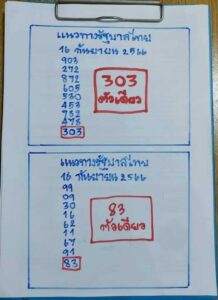 แนวทางรัฐบาลไทย
16 กันยายน 2566
903
272
872
605
530
453
732
473
303
303
ตัวเดียว
แนวทางรัฐบาลไทย
16 กันยายน 2566
99
09
30
16
62
11
67
91
83
83
ตัวเดียว